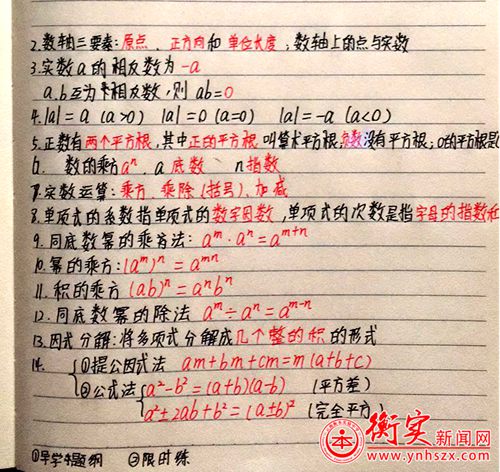 2.数轴三要素:原点、正方向和单位长度;数轴上的点与实数
3.实数a的相反数为-a
a.b互为相反数,则ab=0
4.|a|=a (a>0) |a|=0 (a=0) |a|=-a (a<0)
5.正数有两个平方根,其中正的平方根叫算术平方根;负数没有平方根;0的平方根是
6. 数的乘方aⁿ. a底数 n指数
7.实数运算:乘方、乘除(括号)、加减
8.单项式的系数指单项式的数字因数,单项式的次数是指字母的指数和
9.同底数幂的乘法:aᵐ·aⁿ=aᵐ⁺ⁿ
10.幂的乘方:(aᵐ)ⁿ=aᵐⁿ
11.积的乘方(ab)ⁿ=aⁿbⁿ
12.同底数幂的除法 aᵐ÷aⁿ=aᵐ⁻ⁿ
13.因式分解:将多项式分解成几个整的积的形式
14. ①提公因式法 am+bm+cm=m(a+b+c)
②公式法 a²-b²=(a+b)(a-b) (平方差)
a²±2ab+b²=(a±b)² (完全平方)
①早学4题纲 ②限时练
衡实新闻网
www.ynhszx.com